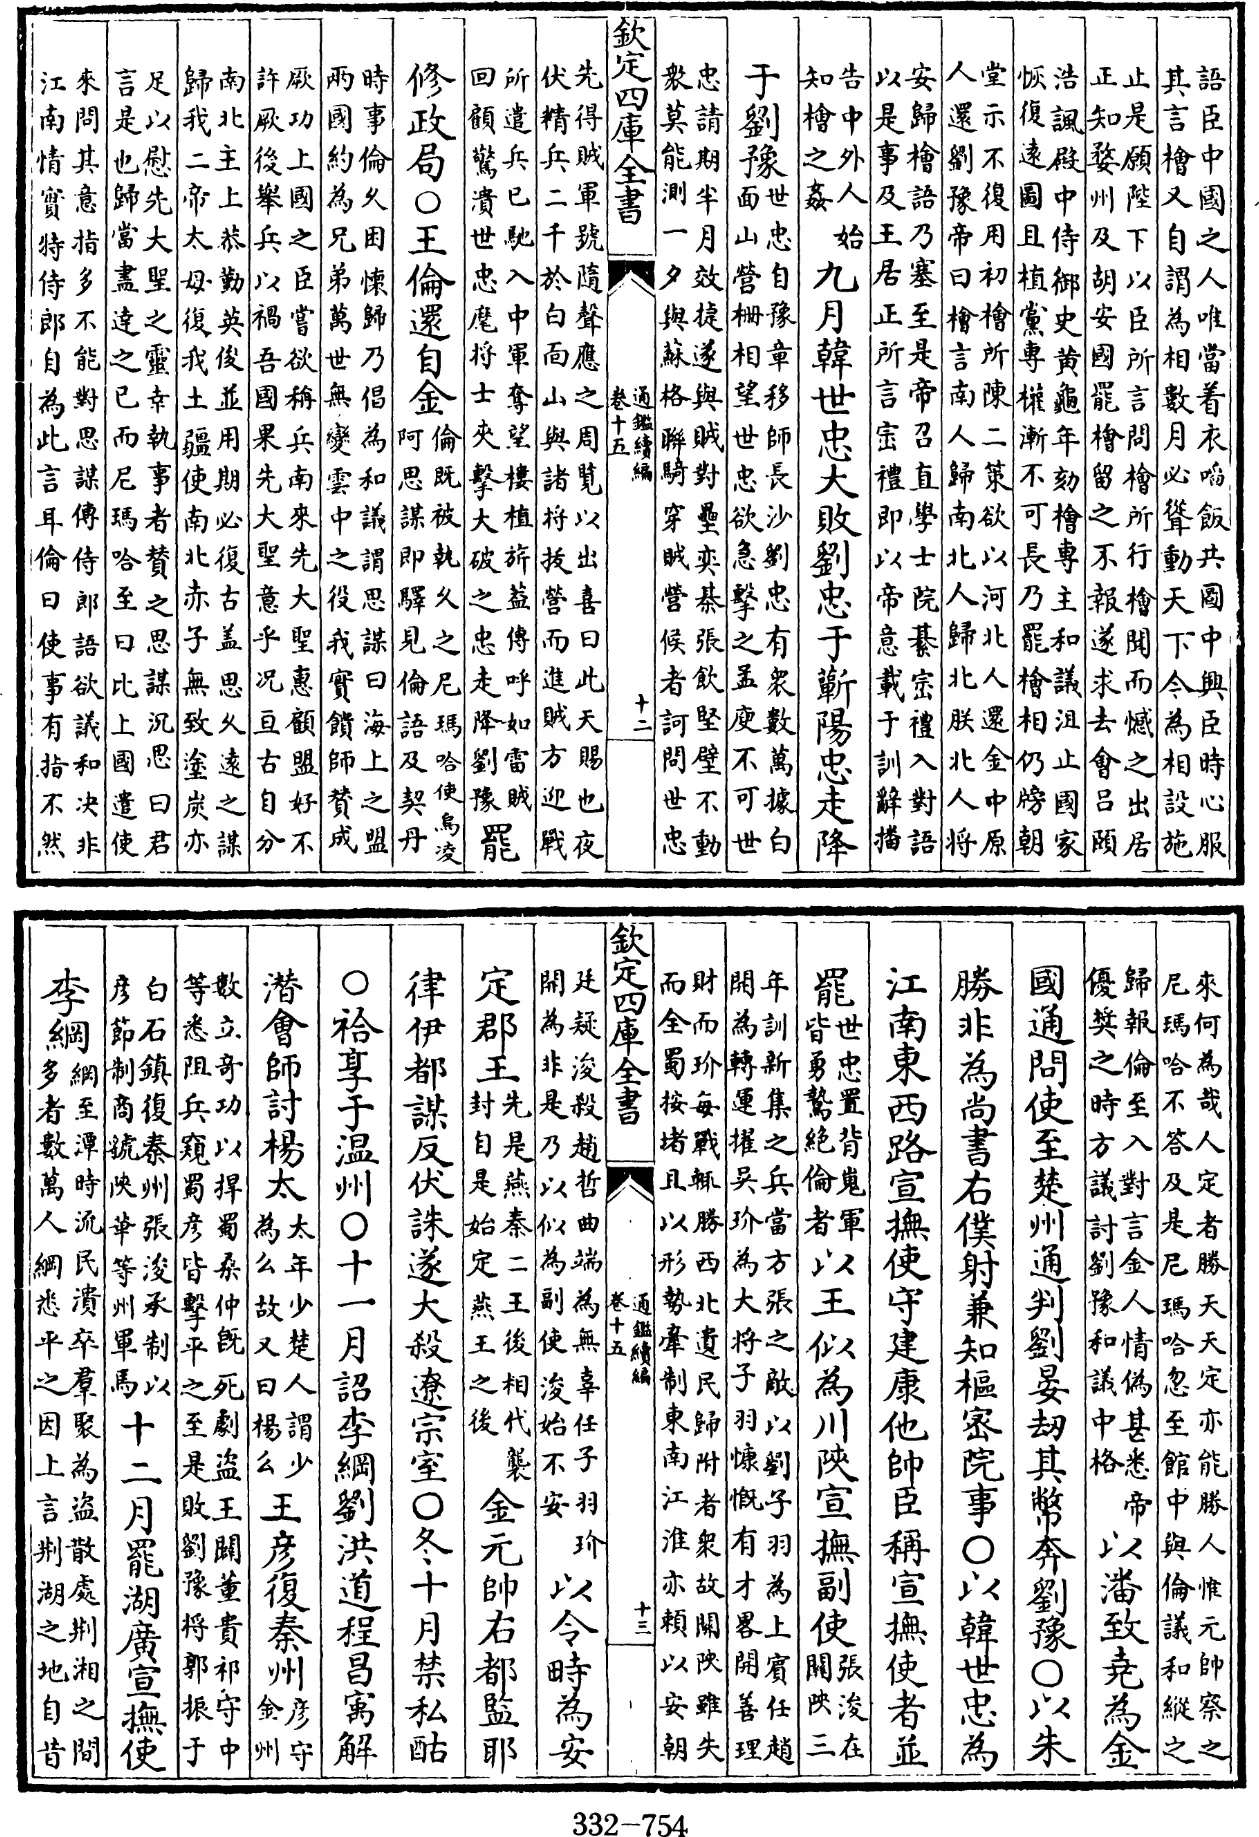 語臣中國之人唯當着衣啗飯共圖中興臣時心服
其言檜又自謂為相數月必聳動天下今為相設施
止是願陛下以臣所言問檜所行檜聞而憾之出居
正知婺州及胡安國罷檜留之不報遂求去會呂頤
浩諷殿中侍御史黄龜年劾檜專主和議沮止國家
恢復遠圖且植黨專權漸不可長乃罷檜相仍牓朝
堂示不復用初檜所陳二策欲以河北人還金中原
人還劉豫帝曰檜言南人歸南北人歸北朕北人將
安歸檜語乃塞至是帝召直學士院綦崈禮入對語
以是事及王居正所言崈禮即以帝意載于訓辭播
告中外人始
知檜之姦
九月韓世忠大敗劉忠于蘄陽忠走降
于劉豫
世忠自豫章移師長沙劉忠有衆數萬據白
面山營柵相望世忠欲急擊之孟庾不可世
忠請期半月效捷遂與賊對壘奕棊張飲堅壁不動
衆莫能測一夕與蘇格聯騎穿賊營候者訶問世忠
欽定四庫全書
通鑑續編
卷十五
十二
先得賊軍號隨聲應之周覽以出喜曰此天賜也夜
伏精兵二千於白面山與諸将拔營而進賊方迎戰
所遣兵已馳入中軍奪望樓植旂葢傳呼如雷賊
回顧驚潰世忠麾将士夾擊大破之忠走降劉豫
罷
修政局○王倫還自金
倫既被執久之尼瑪哈使烏凌
阿思謀即驛見倫語及契丹
時事倫久困懷歸乃倡為和議謂思謀曰海上之盟
兩國約為兄弟萬世無變雲中之役我實饋師賛成
厥功上國之臣嘗欲稱兵南來先大聖惠顧盟好不
許厥後舉兵以禍吾國果先大聖意乎况亘古自分
南北主上恭勤英俊並用期必復古盖思久遠之謀
歸我二帝太母復我土疆使南北赤子無致塗炭亦
足以慰先大聖之靈幸執事者賛之思謀沉思曰君
言是也歸當盡達之已而尼瑪哈至曰比上國遣使
來問其意指多不能對思謀傳侍郎語欲議和决非
江南情實特侍郎自為此言耳倫曰使事有指不然
來何為哉人定者勝天天定亦能勝人惟元帥察之
尼瑪哈不答及是尼瑪哈忽至館中與倫議和縱之
歸報倫至入對言金人情偽甚悉帝
優奬之時方議討劉豫和議中格
以潘致堯為金
國通問使至楚州通判劉晏刼其幣奔劉豫○以朱
勝非為尚書右僕射兼知樞密院事○以韓世忠為
江南東西路宣撫使守建康他帥臣稱宣撫使者並
罷
世忠置背嵬軍
皆勇鷙絶倫者
以王似為川陝宣撫副使
張浚在
關陝三
年訓新集之兵當方張之敵以劉子羽為上賓任趙
開為轉運擢吳玠為大将子羽慷慨有才畧開善理
財而玠每戰輒勝西北遺民歸附者衆故關陝雖失
而全蜀按堵且以形勢牽制東南江淮亦賴以安朝
欽定四庫全書
通鑑續編
卷十五
十三
廷疑浚殺趙哲曲端為無辜任子羽玠
開為非是乃以似為副使浚始不安
以令畤為安
定郡王
先是燕秦二王後相代襲
封自是始定燕王之後
金元帥右都監耶
律伊都謀反伏誅遂大殺遼宗室○冬十月禁私酤
○祫享于温州○十一月詔李綱劉洪道程昌㝢解
潜會師討楊太
太年少楚人謂少
為么故又曰楊么
王彦復秦州
彦守
金州
數立竒功以捍蜀桑仲既死劇盗王闢董貴祁守中
等悉阻兵窺蜀彦皆擊平之至是敗劉豫将郭振于
白石鎮復秦州張浚承制以
彦節制商虢陜華等州軍馬
十二月罷湖廣宣撫使
李綱
綱至潭時流民潰卒羣聚為盜散處荆湘之間
多者數萬人綱悉平之因上言荆湖之地自昔
332-754